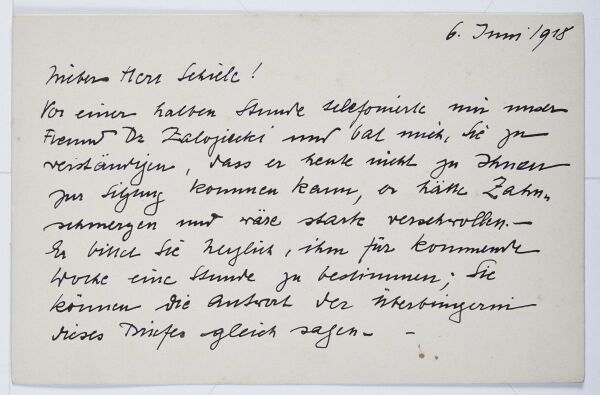 6. Juni 1918
Lieber Herr Schiele!
Vor einer halben Stunde telefonierte mir unser
Freund Dr Zaloziecki und bat mich, Sie zu
verständigen, dass er heute nicht zu Ihnen
zur Sitzung kommen kann, er hätte Zahn-
schmerzen und wäre stark verschwollen. –
Er bittet Sie herzlich, ihm für kommende
Woche eine Stunde zu bestimmen; Sie
können die Antwort der Überbringerin
dieses Briefes gleich sagen – –